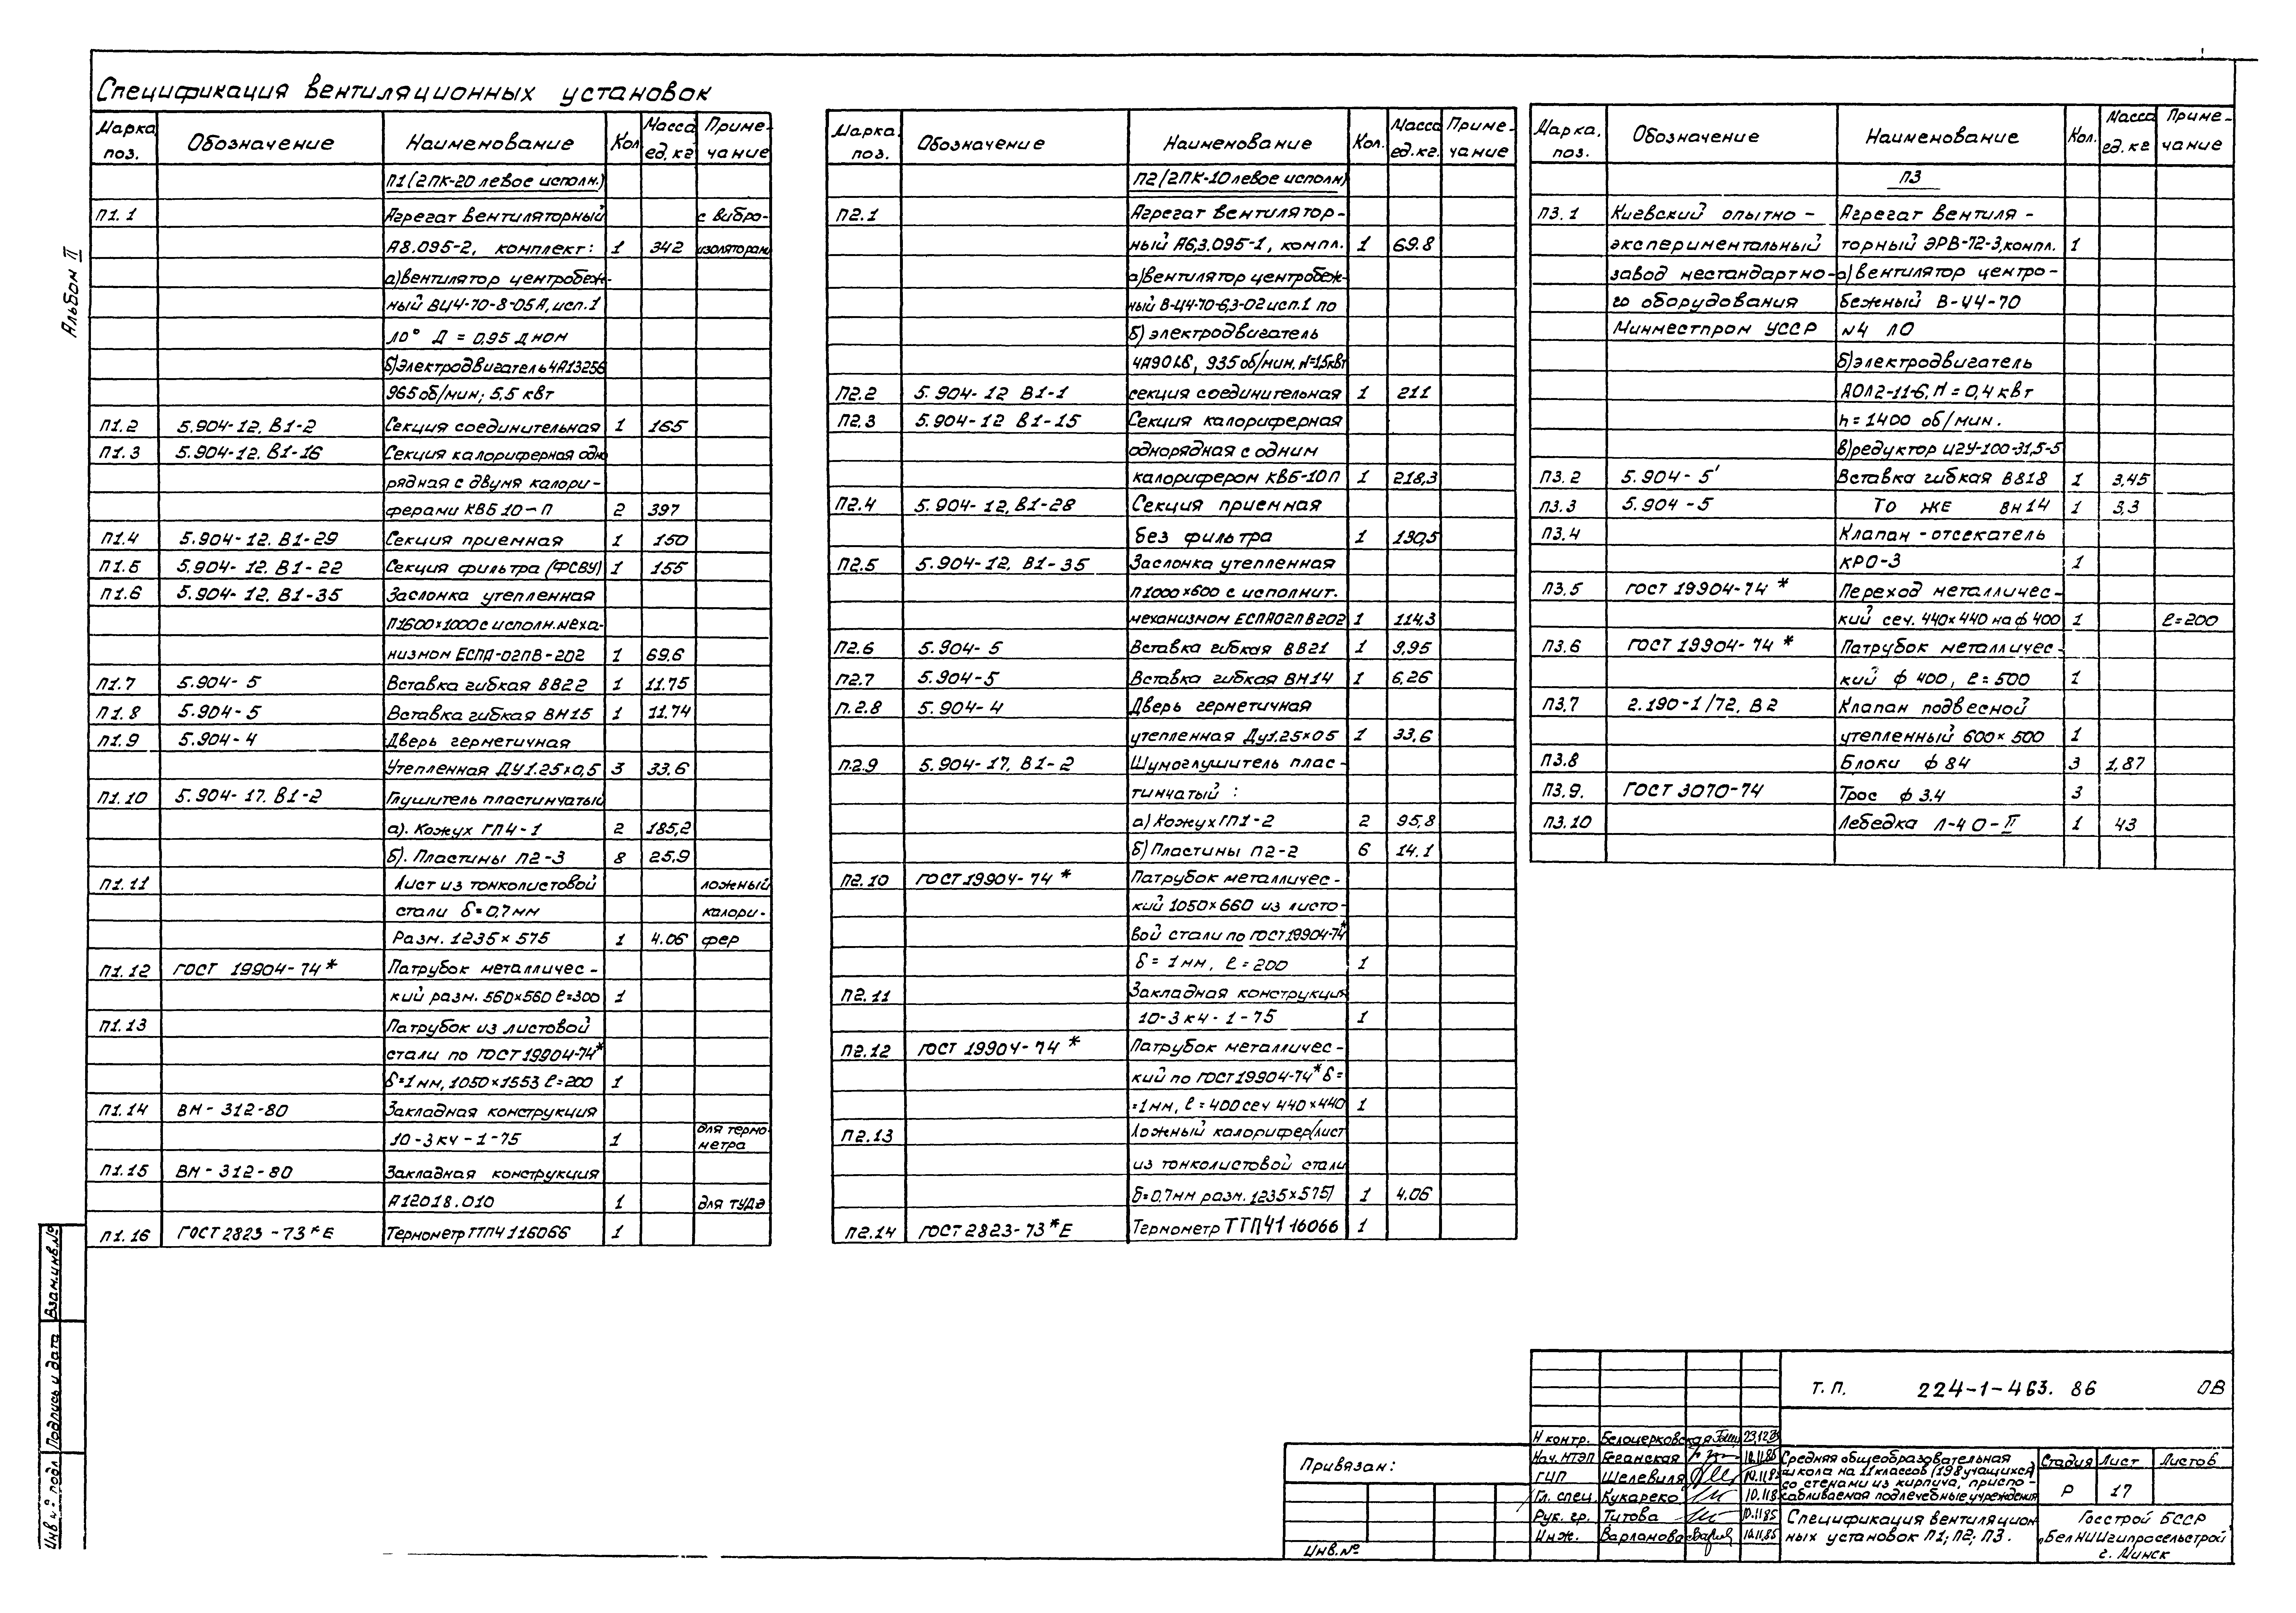 Альбом II
Спецификация вентиляционных установок
Марка поз. Обозначение Наименование Кол Масса ед. кг Примечание
П1 (2ПК-20 левое исполн.)
П1.1 Агрегат вентиляторный с вибро-
А8.095-2, комплект: 1 342 изоляторам
а) вентилятор центробеж-
ный ВЦ4-70-8-05А, исп.1
Л0° Д = 0,95 Дном
б) Электродвигатель 4А132S6
965 об/мин; 5,5 квт
П1.2 5.904-12. В1-2 Секция соединительная 1 165
П1.3 5.904-12. В1-16 Секция калориферная одно
рядная с двумя калори-
ферами КВБ 10-П 2 397
П1.4 5.904-12. В1-29 Секция приемная 1 150
П1.5 5.904-12. В1-22 Секция фильтра (ФСВУ) 1 155
П1.6 5.904-12. В1-35 Заслонка утепленная
П1600×1000 с исполн. меха-
низмом ЕСПА-02ПВ-202 1 69.6
П1.7 5.904-5 Вставка гибкая ВВ22 1 11.75
П1.8 5.904-5 Вставка гибкая ВН15 1 11.74
П1.9 5.904-4 Дверь герметичная
Утепленная ДУ1.25×0,5 3 33.6
П1.10 5.904-17. В1-2 Глушитель пластинчатый
а). Кожух ГП4-1 2 185,2
б). Пластины П2-3 8 25.9
П1.11 Лист из тонколистовой ложный
стали δ=0,7мм калори-
Разм. 1235×575 1 4.06 фер
П1.12 ГОСТ 19904-74* Патрубок металличес-
кий разм. 560×560 ℓ=300 1
П1.13 Патрубок из листовой
стали по ГОСТ 19904-74*
δ=1мм, 1050×1553 ℓ=200 1
П1.14 ВМ-312-80 Закладная конструкция
10-3кч-1-75 1 для термометра
П1.15 ВМ-312-80 Закладная конструкция
А12018.010 1 для ТУДЭ
П1.16 ГОСТ 2823-73*Е Термометр ТТП4 116066 1
Марка. поз. Обозначение Наименование Кол. Масса ед.кг. Примечание
П2 (2ПК-10 левое исполн)
П2.1 Агрегат вентилятор-
ный А6,3.095-1, компл. 1 69.8
а) вентилятор центробеж-
ный В-Ц4-70-6,3-02 исп.1 по
б) электродвигатель
4А90L6, 935 об/мин. N=1,5квт
П2.2 5.904-12 В1-1 секция соединительная 1 211
П2.3 5.904-12 В1-15 Секция калориферная
однорядная с одним
калорифером КВБ-10П 1 218,3
П2.4 5.904-12. В1-28 Секция приемная
без фильтра 1 130,5
П2.5 5.904-12. В1-35 Заслонка утепленная
П1000×600 с исполнит.
механизмом ЕСПА02ПВ202 1 114,3
П2.6 5.904-5 Вставка гибкая ВВ21 1 9,95
П2.7 5.904-5 Вставка гибкая ВН14 1 6,26
П.2.8 5.904-4 Дверь герметичная
утепленная Ду1.25×05 1 33,6
П.2.9 5.904-17. В1-2 Шумоглушитель плас-
тинчатый :
а) Кожух ГП1-2 2 95,8
б) Пластины П2-2 6 14.1
П2.10 ГОСТ 19904-74* Патрубок металличес-
кий 1050×660 из листо-
вой стали по ГОСТ 19904-74*
δ= 1мм, ℓ=200 1
П2.11 Закладная конструкция
10-3кч-1-75 1
П2.12 ГОСТ 19904-74* Патрубок металличес-
кий по ГОСТ 19904-74* δ=
=1мм, ℓ=400 сеч 440×440 1
П2.13 Ложный калорифер (лист
из тонколистовой стали
δ=0,7мм разм. 1235×575) 1 4.06
П2.14 ГОСТ 2823-73*Е Термометр ТТП41 16066 1
Марка. поз. Обозначение Наименование Кол. Масса ед. кг Примечание
П3
П3.1 Киевский опытно- Агрегат вентиля-
экспериментальный торный ЭРВ-72-3, компл. 1
завод нестандартно- а) вентилятор центро-
го оборудования бежный В-Ц4-70
Минместпром УССР №4 Л0
б) электродвигатель
АОЛ2-11-6, N = 0,4 квт
n = 1400 об/мин.
в) редуктор Ц2У-100-31,5-5
П3.2 5.904-5 Вставка гибкая ВВ18 1 3,45
П3.3 5.904-5 То же ВН14 1 3,3
П3.4 Клапан-отсекатель
КРО-3 1
П3.5 ГОСТ 19904-74* Переход металличес-
кий сеч. 440×440 на ф 400 1 ℓ=200
П3.6 ГОСТ 19904-74* Патрубок металличес-
кий ф 400, ℓ=500 1
П3.7 2.190-1/72. В2 Клапан подвесной
утепленный 600×500 1
П3.8 Блоки ф 84 3 1,87
П3.9. ГОСТ 3070-74 Трос ф 3.4 3
П3.10 Лебедка Л-40-II 1 43
Взам.инв.№
Подпись и дата
Инв.№ подл
Привязан:
Инв.№
Т.П. 224-1-463. 86 ОВ
Н контр. Белоцерковская 23.12.85
Нач. МТЭП Геганская 10.11.85
ГИП Шелевиля 10.11.85
Гл. спец. Кукареко 10.11.8
Рук. гр. Титова 10.11.85
Инж. Варламова 10.11.85
Средняя общеобразовательная
школа на 11 классов (198 учащихся)
со стенами из кирпича, приспо-
сабливаемая под лечебные учреждения
Стадия Лист Листов
Р 17
Спецификация вентиляцион
ных установок П1; П2; П3.
Госстрой БССР
„БелНИИгипросельстрой"
г. Минск